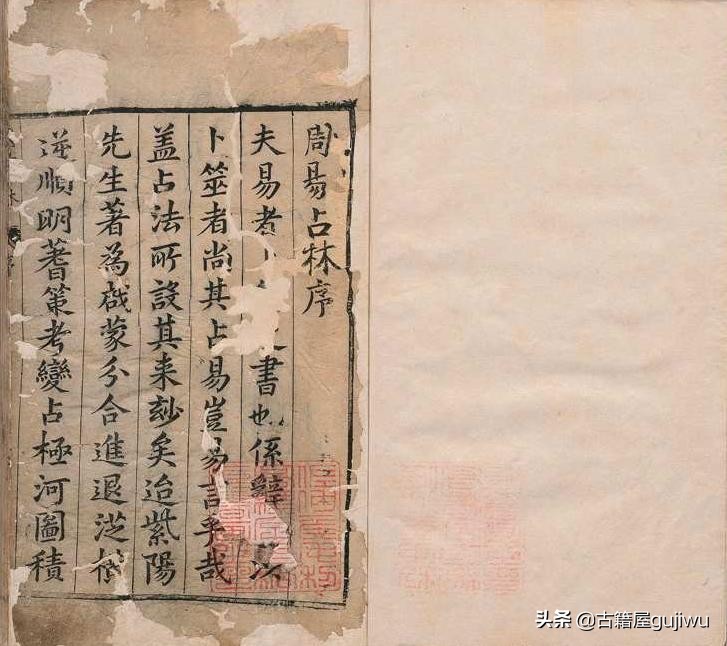 周易占林序
夫易者書也係辭以
卜筮者尚其占易豈易言乎哉
盖占法所設其来玅矣迨紫陽
先生著為啟蒙分合進退從横
逆順明蓍策考變占極河圖積
头条 @古籍屋gujiwu